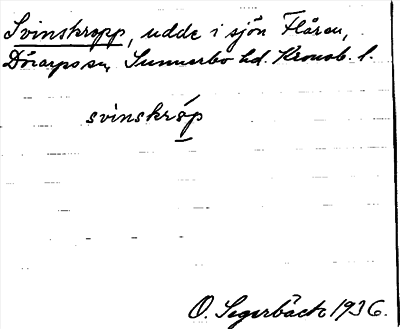 Svinskropp, udde i sjön Flåren,
Dörarps sn, Sunnerbo hd. Kronob. l.
svinskrǫ́p
O. Segerbäck 1936.